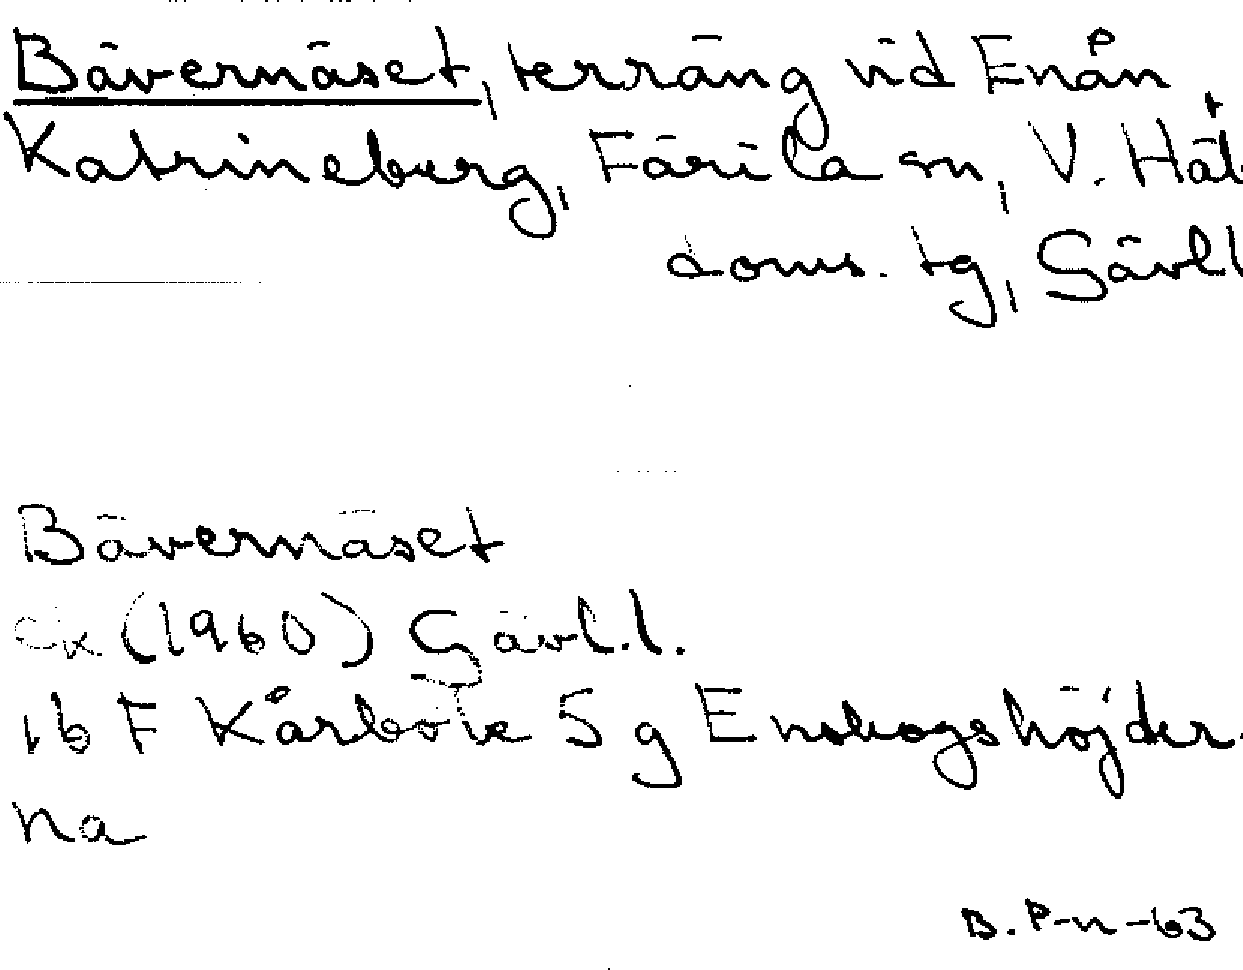 Bävernäset, terräng vid Enån
Katrineburg, Färila sn, V. Häl.
doms. tg, Gävl.l
Bävernäset
Ek (1960) Gävl.l.
16 F Kårböle 5 g Enskogshöjder-
na
B. P-n -63